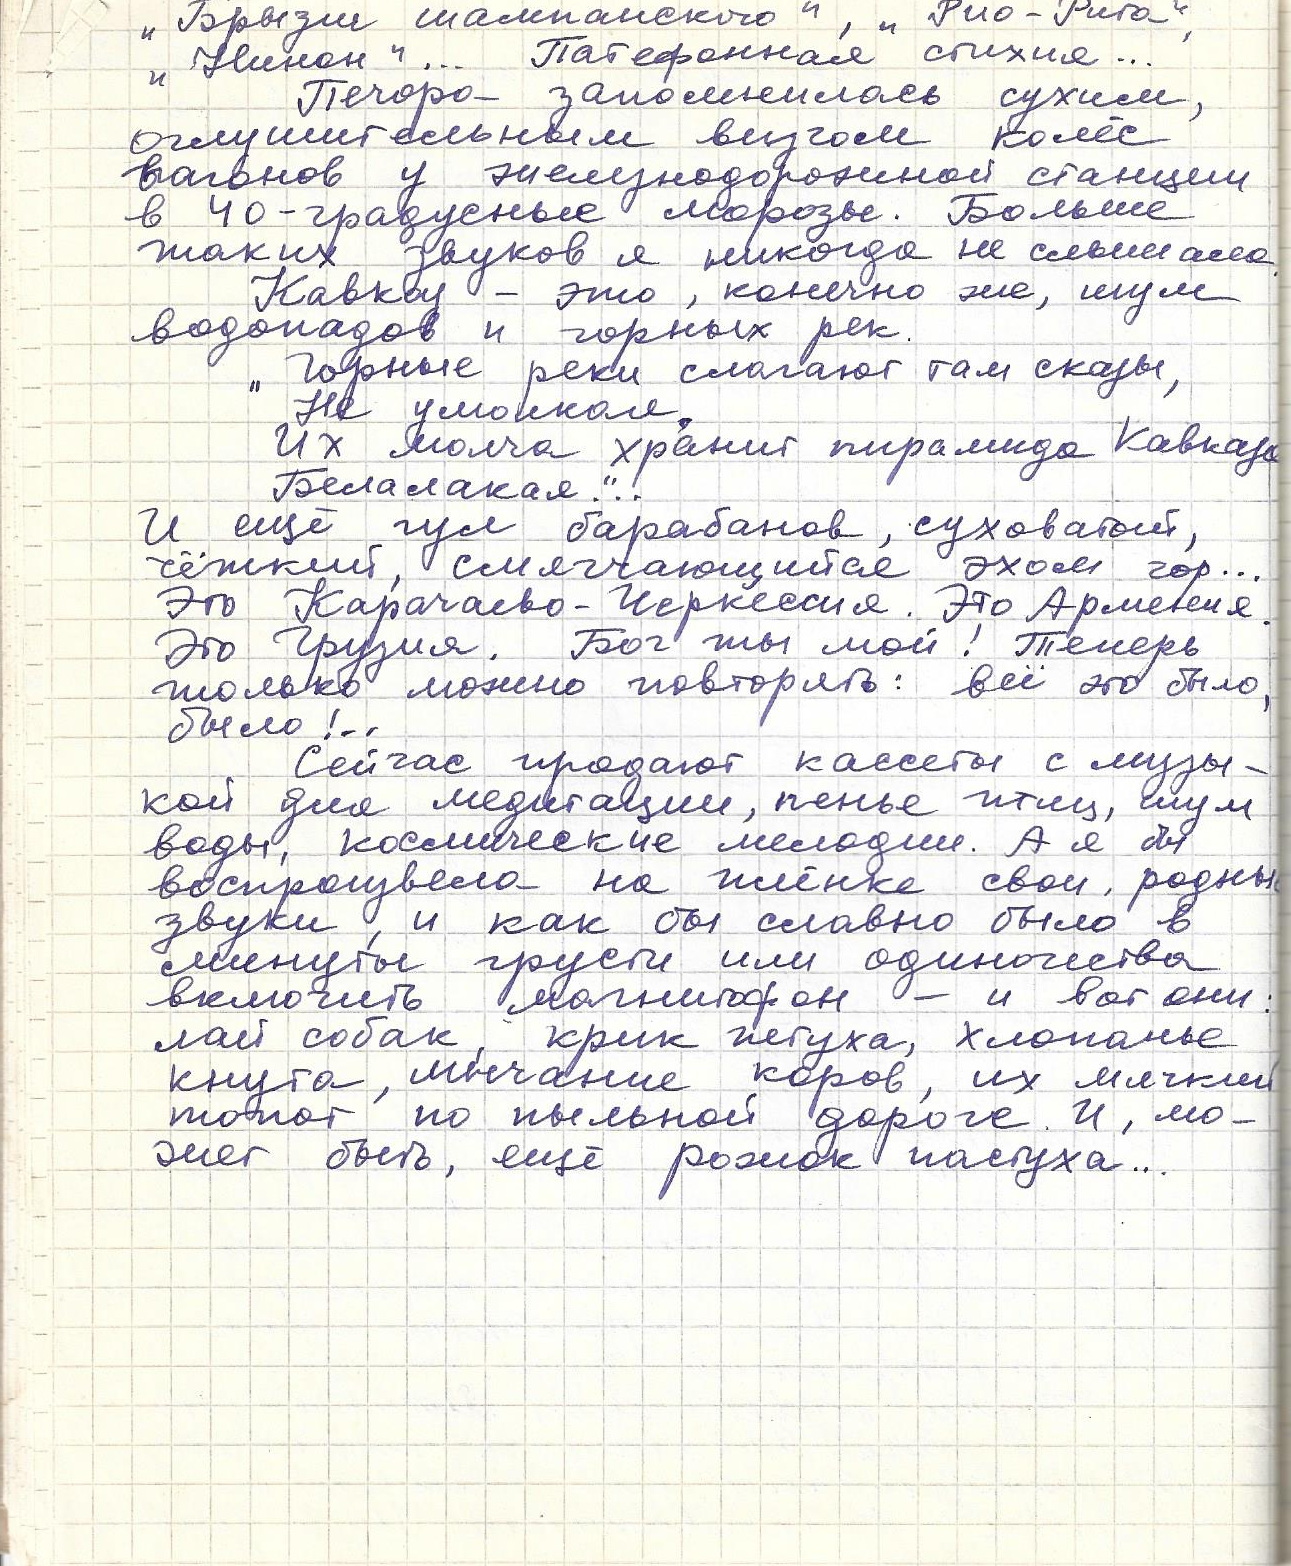 „Брызги шампанского“, „Рио-Рита“,
„Нинон“... Патефонная стихия...
Печора запомнилась сухим,
оглушительным визгом колёс
вагонов у железнодорожной станции
в 40-градусные морозы. Больше
таких звуков я никогда не слышала.
Кавказ – это, конечно же, шум
водопадов и горных рек.
„Горные реки слагают там сказы,
Не умолкая.
Их молча хранит пирамида Кавказа
Белалакая.“..
И ещё гул барабанов, суховатый,
чёткий, смягчающийся эхом гор...
Это Карачаево-Черкессия. Это Армения.
Это Грузия. Бог ты мой! Теперь
только можно повторять: всё это было,
было!..
Сейчас продают кассеты с музы-
кой для медитации, пенье птиц, шум
воды, космические мелодии. А я бы
воспроизвела на плёнке свои, родные
звуки, и как бы славно было в
минуты грусти или одиночества
включить магнитофон – и вот они:
лай собак, крик петуха, хлопанье
кнута, мычание коров, их мягкий
топот по пыльной дороге. И, мо-
жет быть, ещё рожок пастуха...